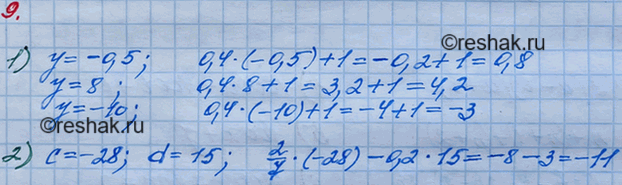 9.
©reshak.ru
1) y=-0,5; 0,4·(-0,5)+1=-0,2+1=0,8
y=8; 0,4·8+1=3,2+1=4,2
y=-10; 0,4·(-10)+1=-4+1=-3
©reshak.ru
2) c=-28; d=15; 2/7·(-28)-0,2·15=-8-3=-11